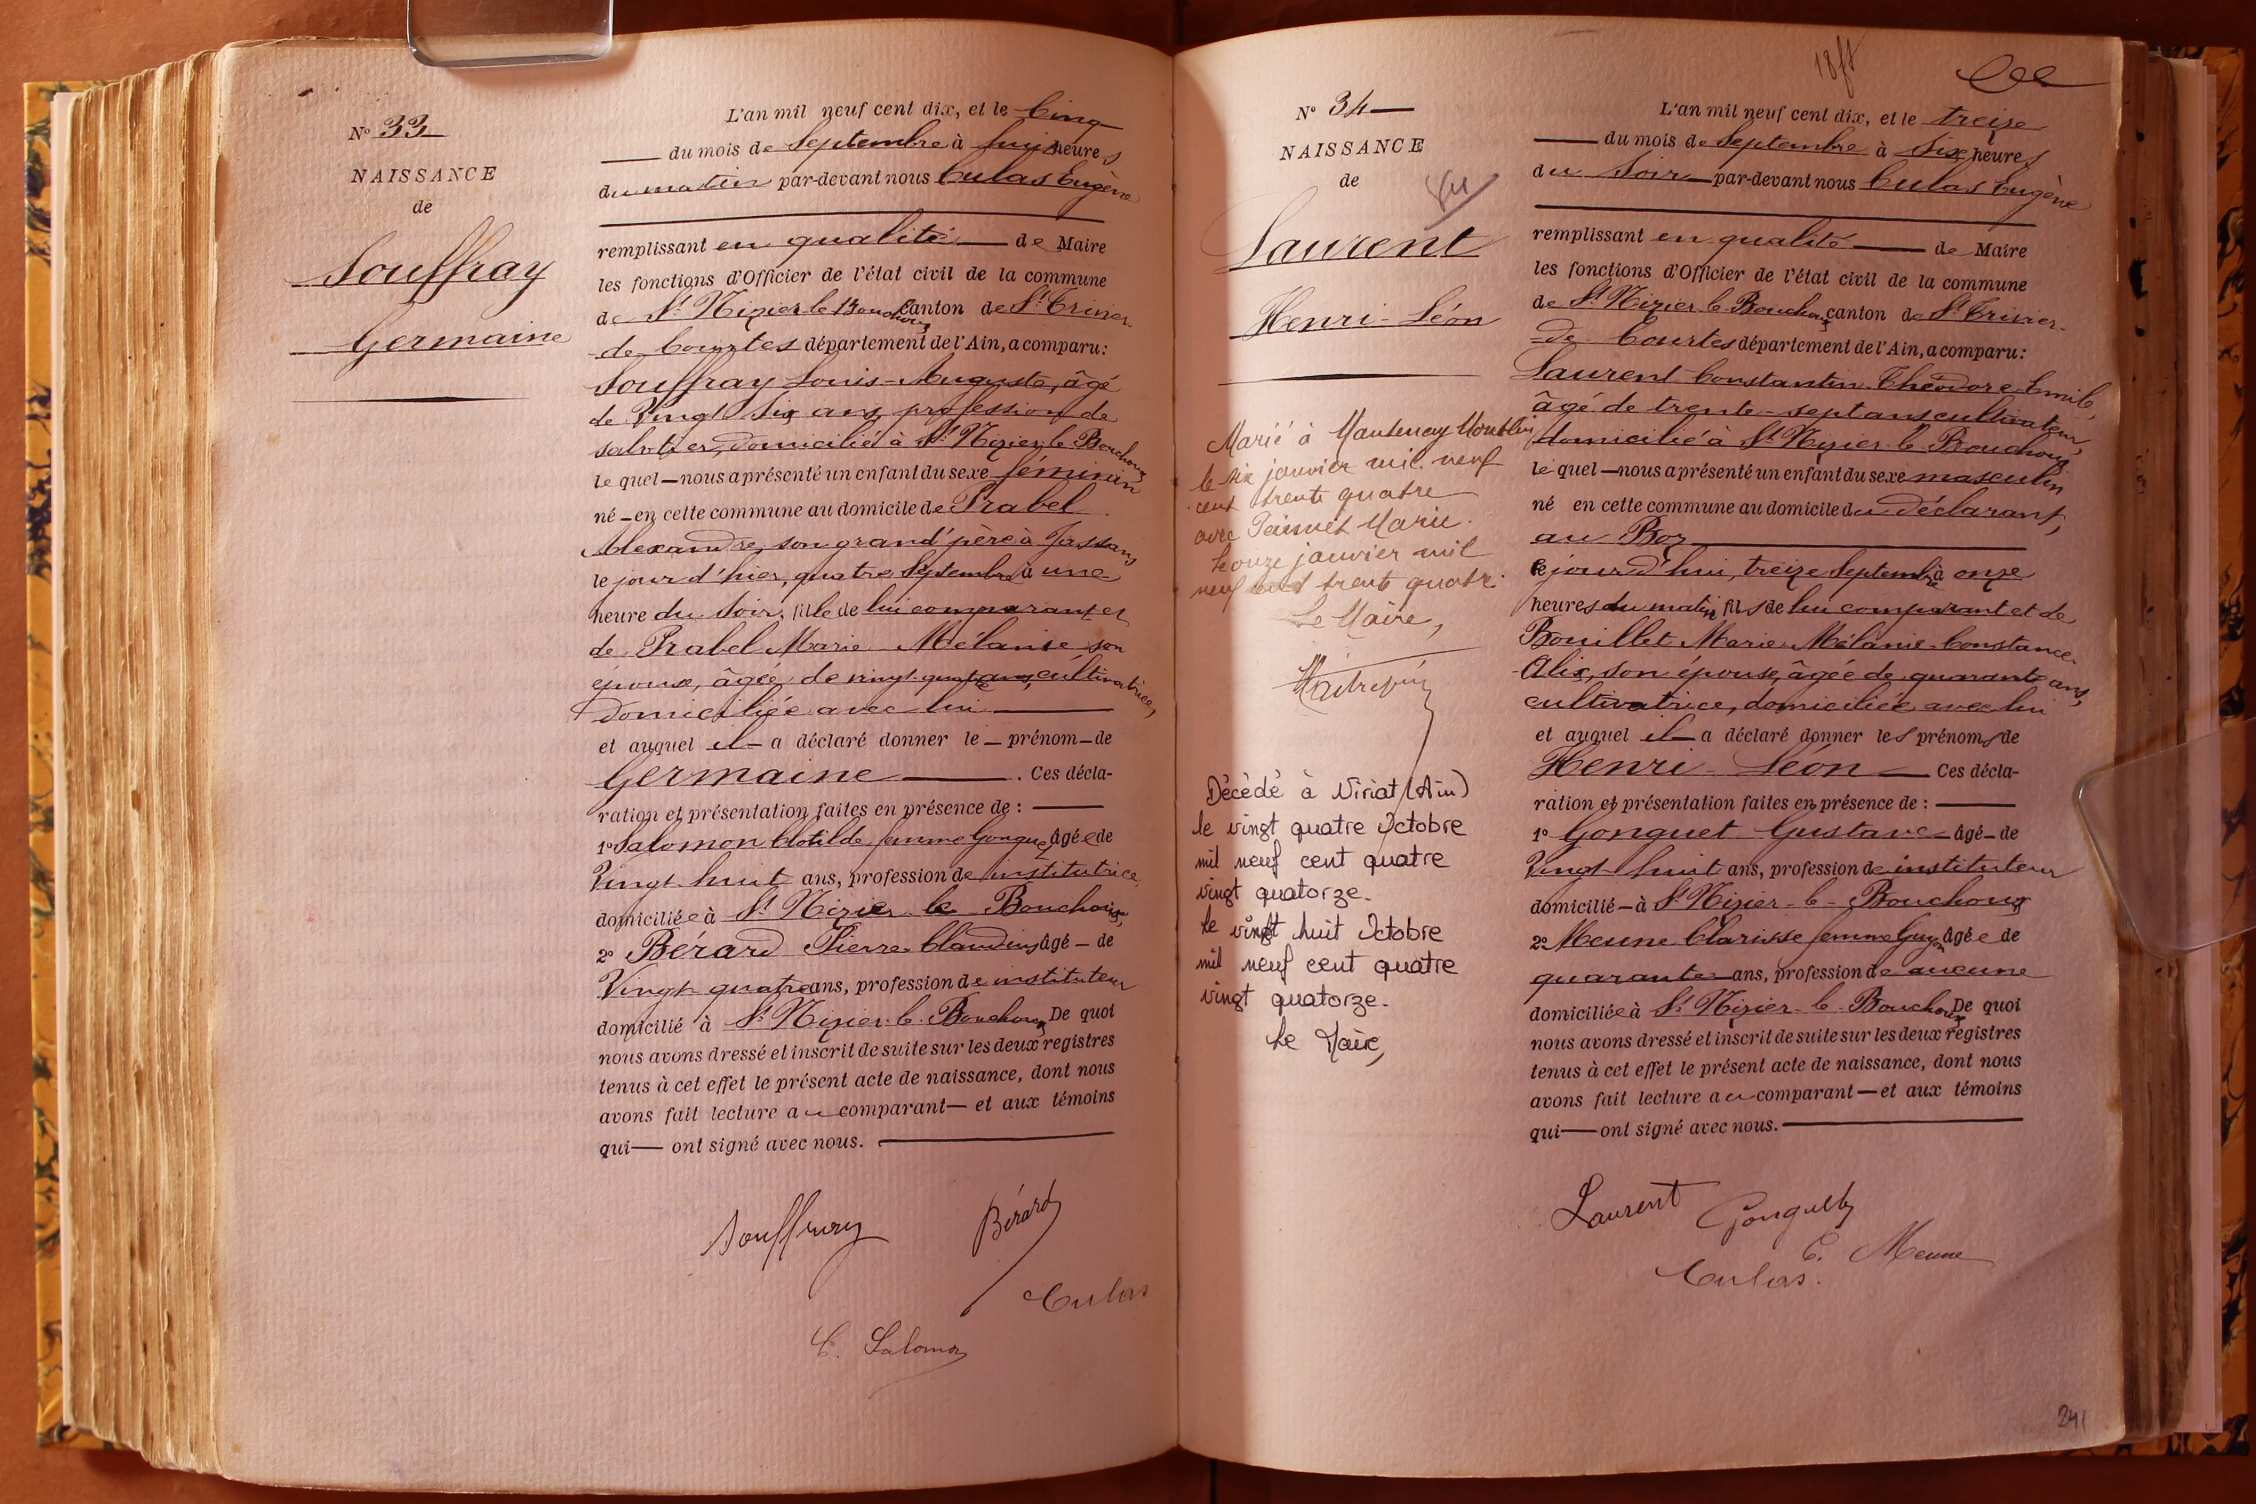 N° 33
NAISSANCE
de
Souffray
Germaine
L'an mil neuf cent dix, et le Cinq
du mois de Septembre à huit heures
du matin par-devant nous Culas Eugène
remplissant en qualité de Maire
les fonctions d'Officier de l'état civil de la commune
de St Nizier le Bouchoux canton de St Trivier
de Courtes département de l'Ain, a comparu:
Souffray Louis-Auguste, âgé
de Vingt six ans profession de
sabotier, domicilié à St Nizier le Bouchoux
le quel nous a présenté un enfant du sexe féminin
né en cette commune au domicile de Prabel
Alexandre, son grand'père à Jassans
le jour d'hier, quatre Septembre à une
heure du soir, fille de lui comparant et
de Prabel Marie Mélanie son
épouse, âgée de vingt quatre ans, cultivatrice,
domiciliée avec lui
et auquel il a déclaré donner le prénom de
Germaine . Ces décla-
ration et présentation faites en présence de :
1° Salomon Clotilde femme Gonguet âgée de
Vingt huit ans, profession de institutrice
domiciliée à St Nizier le Bouchoux,
2° Bérard Pierre Claudius âgé de
Vingt quatre ans, profession de instituteur
domicilié à St Nizier le Bouchoux De quoi
nous avons dressé et inscrit de suite sur les deux registres
tenus à cet effet le présent acte de naissance, dont nous
avons fait lecture au comparant et aux témoins
qui ont signé avec nous.
Souffray Bérard
Culas
C. Salomon
N° 34
NAISSANCE
de
Vu
Laurent
Henri-Léon
Marié à Mantenay Montlin
le six janvier mil neuf
cent trente quatre
avec Marie.
Le onze janvier mil
neuf cent trente quatre.
Le Maire,
Décédé à Viriat (Ain)
le vingt quatre Octobre
mil neuf cent quatre
vingt quatorze.
Le vingt huit Octobre
mil neuf cent quatre
vingt quatorze.
Le Maire,
L'an mil neuf cent dix, et le treize
du mois de Septembre à six heures
du soir par-devant nous Culas Eugène
remplissant en qualité de Maire
les fonctions d'Officier de l'état civil de la commune
de St Nizier le Bouchoux canton de St Trivier-
de Courtes département de l'Ain, a comparu:
Laurent Constantin Théodore Emile,
âgé de trente-sept ans cultivateur,
domicilié à St Nizier le Bouchoux,
le quel nous a présenté un enfant du sexe masculin
né en cette commune au domicile du déclarant,
au Boz
ce jour d'hui, treize Septembre à onze
heures du matin fils de lui comparant et de
Bouillet Marie Mélanie Constance
Alix, son épouse, âgée de quarante ans,
cultivatrice, domiciliée avec lui
et auquel il a déclaré donner les prénoms de
Henri-Léon Ces décla-
ration et présentation faites en présence de :
1° Gonguet Gustave âgé de
Vingt huit ans, profession de instituteur
domicilié à St Nizier-le-Bouchoux
2° Meune Clarisse femme Guyon âgée de
quarante ans, profession de aucune
domiciliée à St Nizier-le-Bouchoux De quoi
nous avons dressé et inscrit de suite sur les deux registres
tenus à cet effet le présent acte de naissance, dont nous
avons fait lecture au comparant et aux témoins
qui ont signé avec nous.
Laurent Gonguet
C. Meune
Culas.
241